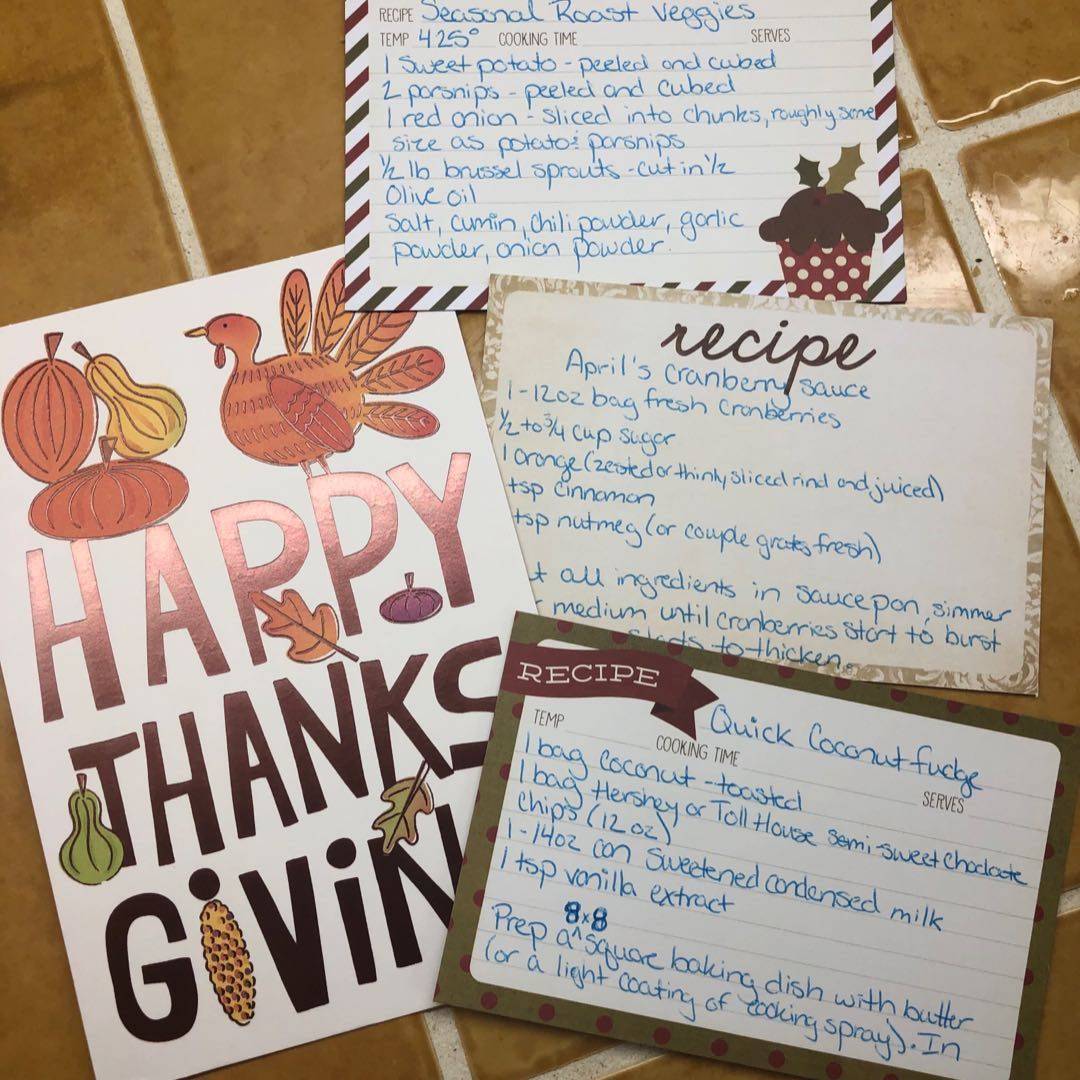 RECIPE Seasonal Roast Veggies
TEMP 425° COOKING TIME SERVES
1 sweet potato - peeled and cubed
2 parsnips - peeled and cubed
1 red onion - sliced into chunks, roughly same
size as potato & parsnips
½ lb brussel sprouts - cut in ½
Olive oil
Salt, cumin, chili powder, garlic
powder, onion powder.
HAPPY
THANKS
GiViN
recipe
April's Cranberry sauce
1 - 12oz bag fresh cranberries
½ to ¾ cup sugar
1 orange (zested or thinly sliced rind and juiced)
tsp cinnamon
tsp nutmeg (or couple grates fresh)
all ingredients in saucepan, simmer
medium until cranberries start to burst
starts to thicken.
RECIPE
Quick Coconut fudge
TEMP COOKING TIME SERVES
1 bag coconut - toasted
1 bag Hershey or Toll House semi-sweet chocolate
chips (12 oz)
1 - 14oz can sweetened condensed milk
1 tsp vanilla extract
Prep a ^ 8x8 square baking dish with butter
(or a light coating of cooking spray). In